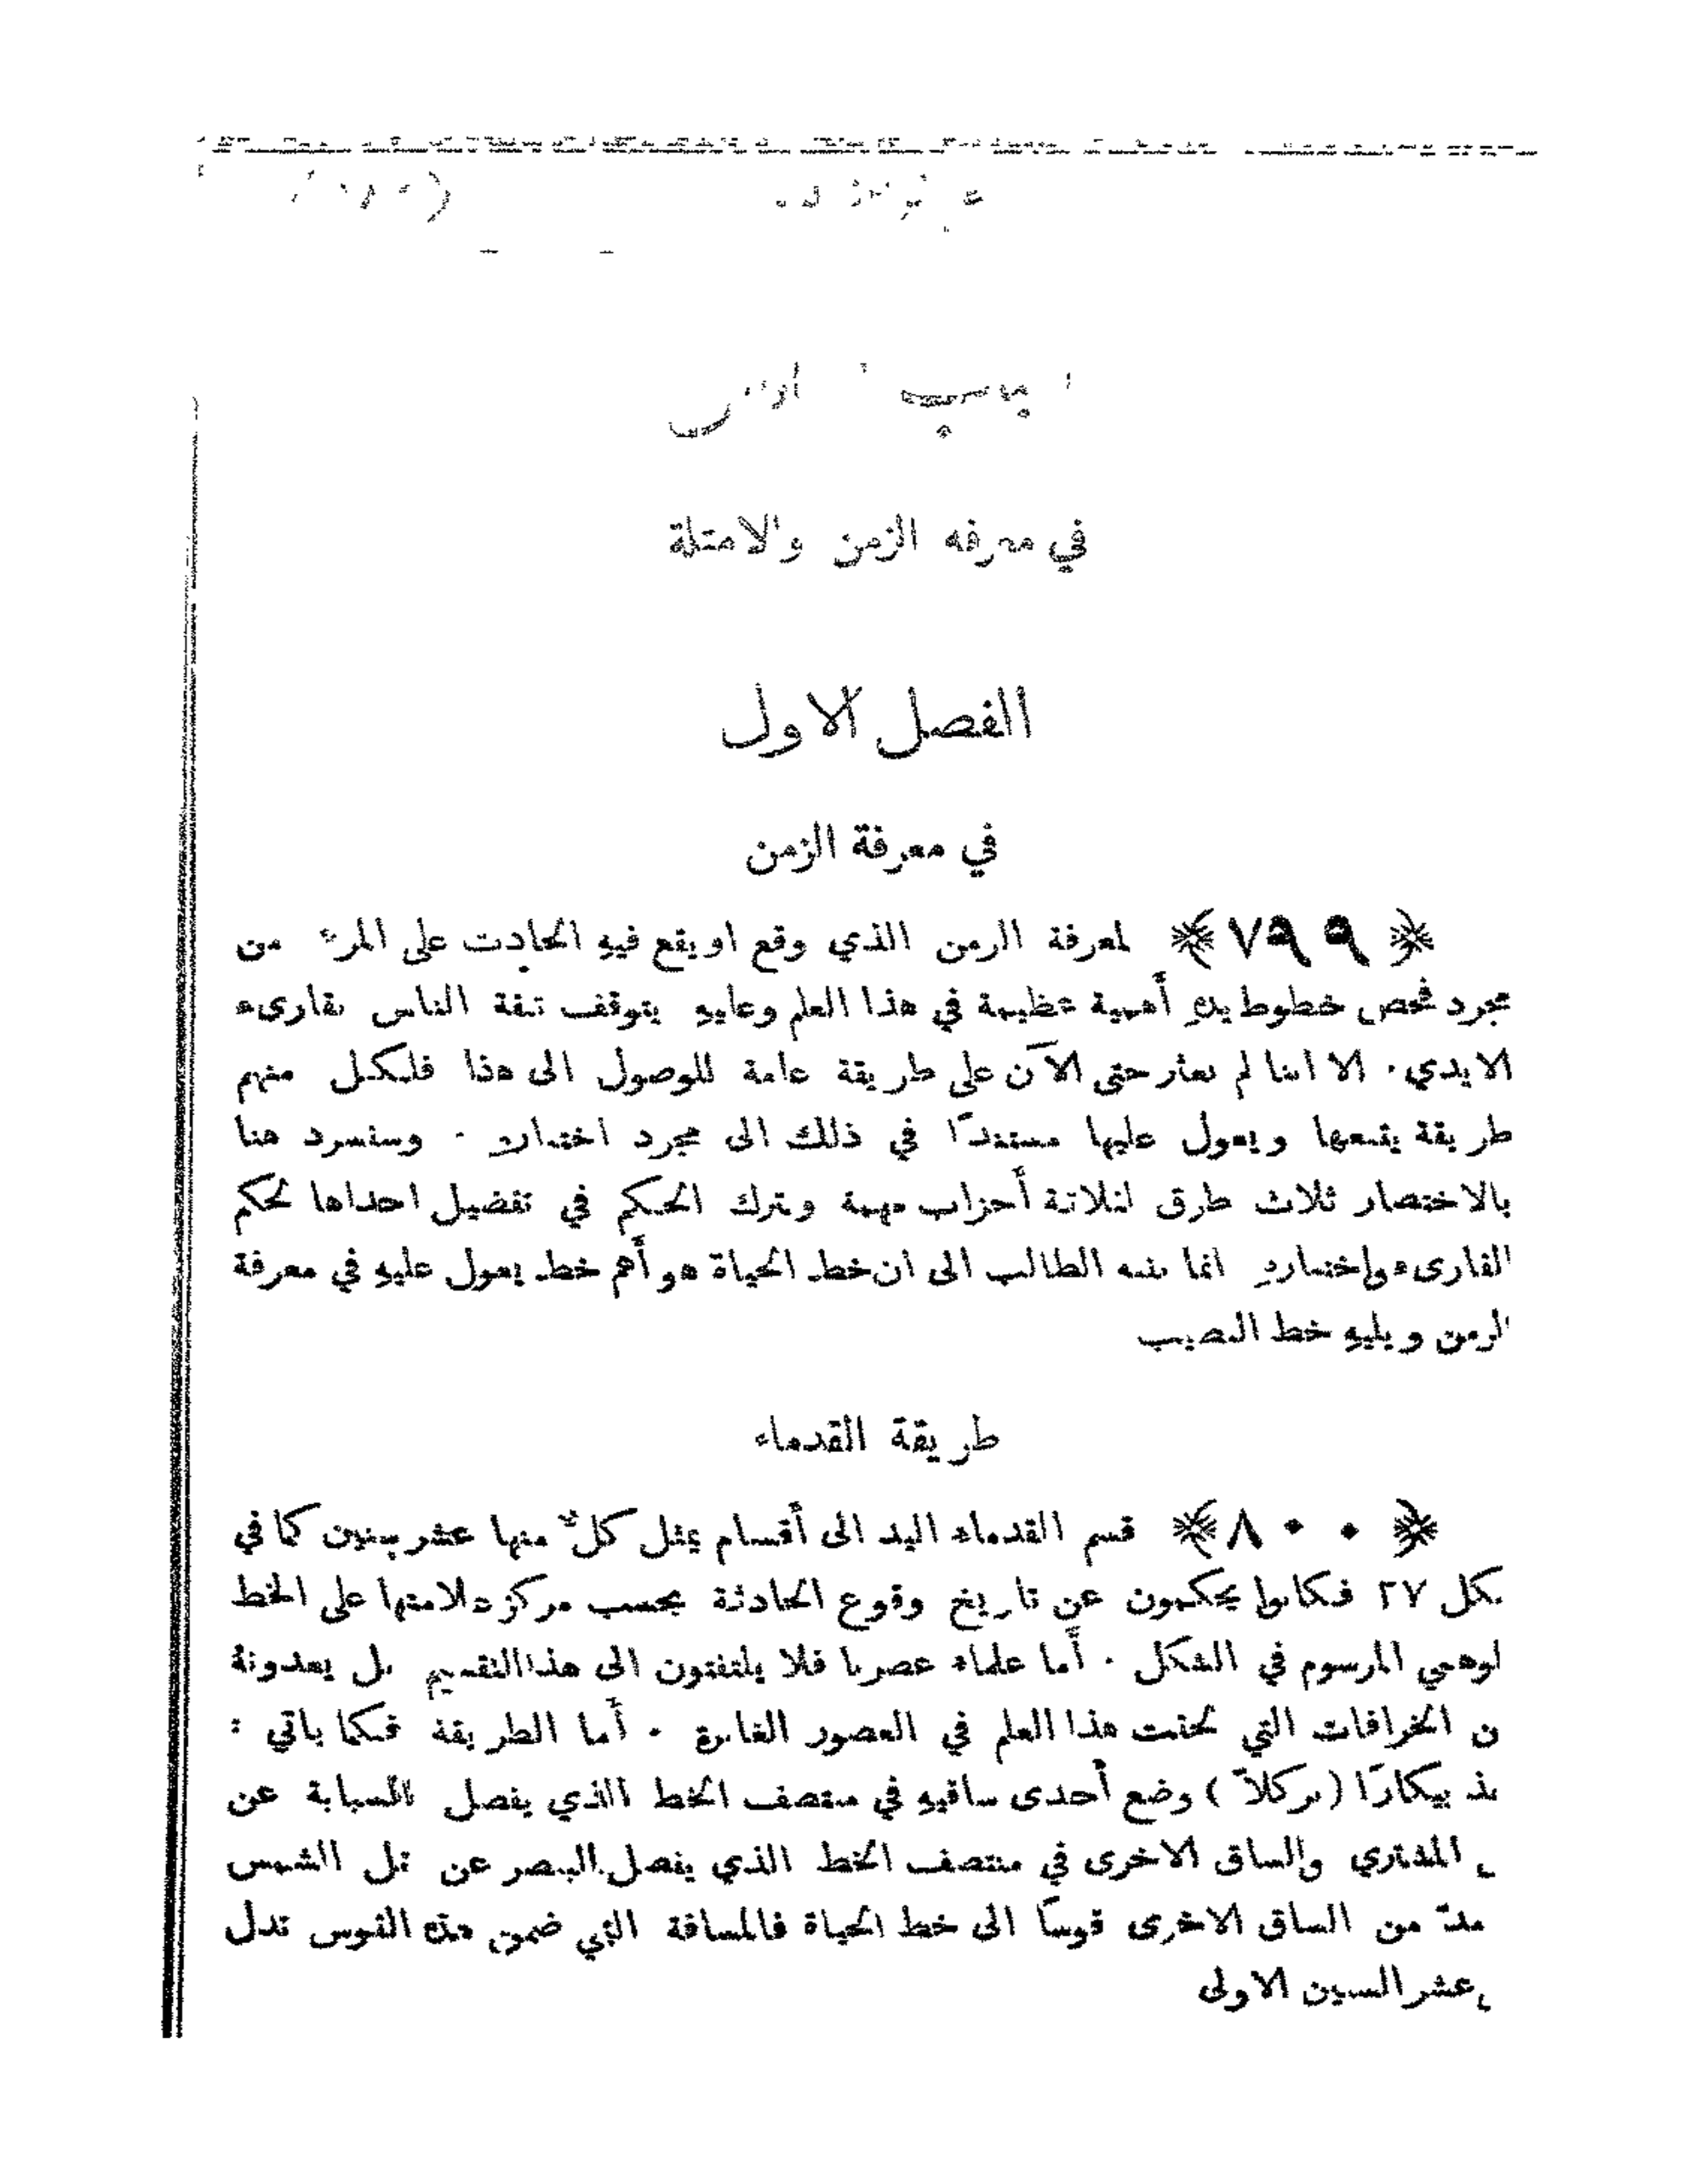 في معرفه الزمن والامثلة
الفصل الاول
في معرفة الزمن
﴿ ٧٩٩ ﴾ لمعرفة الزمن الذي وقع او يقع فيهِ الحادث على المرء من
مجرد فحص خطوط يدهِ أهمية عظيمة في هذا العلم وعليهِ يتوقف ثقة الناس بقارىء
الايدي . الا اننا لم نعثر حتى الآن على طريقة عامة للوصول الى هذا فلكل منهم
طريقة يتبعها ويعول عليها مستندًا في ذلك الى مجرد اختباره . وسنسرد هنا
بالاختصار ثلاث طرق لثلاثة أحزاب مهمة ونترك الحكم في تفضيل احداها لحكم
القارىء واختباره انما ننبه الطالب الى ان خط الحياة هو أهم خط يعول عليهِ في معرفة
الزمن ويليهِ خط النصيب
طريقة القدماء
﴿ ٨٠٠ ﴾ قسم القدماء اليد الى أقسام يمثل كلٌ منها عشر سنين كما في
كل ٢٧ فكانوا يحكمون عن تاريخ وقوع الحادثة بحسب مركز علامتها على الخط
لوهمي المرسوم في الشكل . أما علماء عصرنا فلا يلتفتون الى هذا التقسيم بل يعدونهُ
ن الخرافات التي لحقت هذا العلم في العصور الغابرة . أما الطريقة فكما ياتي :
بيكارًا (بركلاً) وضع أحدى ساقيهِ في منتصف الخط الذي يفصل السبابة عن
المشتري والساق الاخرى في منتصف الخط الذي يفصل البنصر عن تل الشمس
من الساق الاخرى قوسًا الى خط الحياة فالمسافة التي ضمن هذه القوس تدل
عشر السنين الاولى